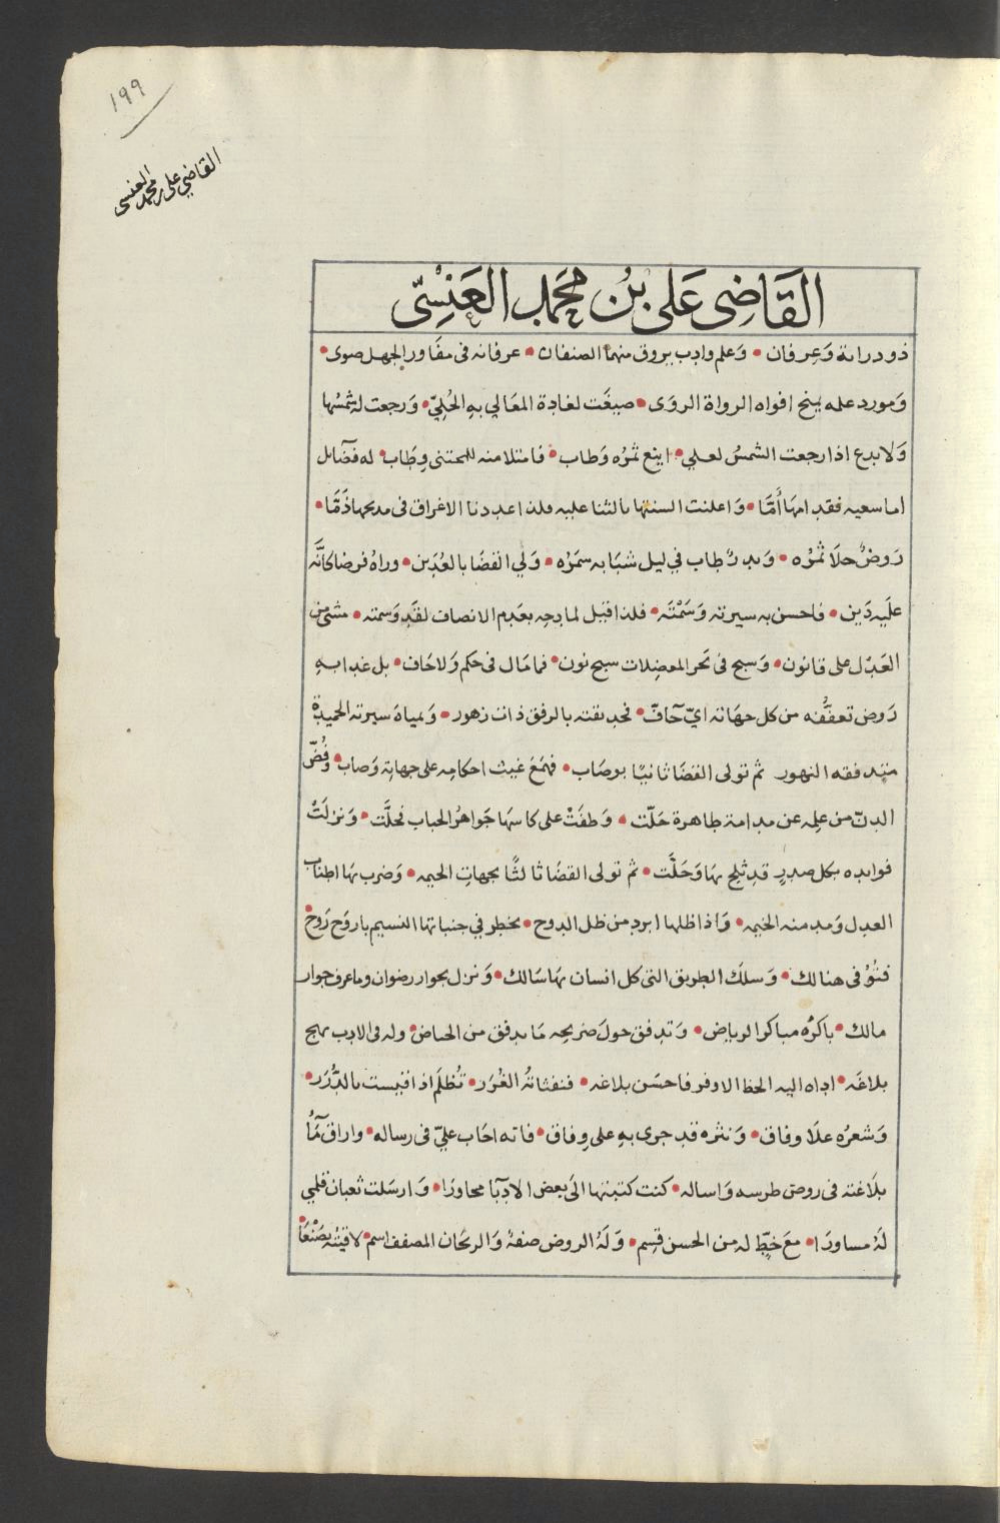 ١٩٩
القاضي علي بن محمد العنسي
القَاضِى عَلى بنُ محَمَّد العَنسِىّ
ذو دراىة وَعِرفان • وَعلم وادب يروق منهما الصنفان • عرفانه فى مفَاوز الجهل صوى •
وَمورد علمه ينح افواه الرواة الروَى • صيغَت لغادة المعَالي بهِ الحُلِيّ • وَرجعت لهُ شمسُها
وَلابدع اذا رجعت الشمسُ لعلي • اينع ثمرُه وَطاب • فامتلا منه للمجتنى وِطَاب • له فضَائل
اما سعيه فقد امهَا أَمَّا • وَاعلنت السنتها بالثنا عليه فلذا عددنا الاغراق فى مديحها ذَمَّا •
رَوضٌ حلَا ثمرُه • وَبدرٌ طاب في ليل شبَابه سمَرُه • وَلي القضَا بالعُدَين • وراهُ فرضا كانَّه
علَيه دَين • فاحسن به سيرته وَسَمْتَه • فلذا قيل لمادحِه بعَدم الانصاف لقَد وَسمته • مشى من
العَدْل على قانون • وَسبح فى بَحر المعضِلات سبح نون • فما مَال فى حكم وَلا حَاف • بل غدا بهِ
رَوض تعفّفه من كل جهَاته ايّ حَافّ • فحديقته بالرفق ذات زهور • وَلمياهَ سيرته الحميدة
متدفقه النهور ثم تولى القضَا ثانيًا بوصَاب • فهَمَعَ غيث احكامه على جهاتِه وَصاب • وفُضّ
الدنّ من عِلمه عن مدامة طاهرة حَلّت • وَطفَتْ على كاسهَا جَواهرُ الحباب فحلَّت • وَنزلَتْ
فوايده بكل صدرٍ قد ثلج بهَا وَحَلَّت • ثم تولى القضَا ثالثًا بجهات الحيمه • وَضرب بهَا اطناب
العدل وَمد منه الخيمه • وَاذا ظلها ابرد من ظل الدوح • يخطر في جنباتها النسيم باروَح رَوح •
فتُوُفى هنالك • وَسلَك الطريق التى كل انسان بهَا سَالك • وَنزل بجوار رضوان وما عرف جوار
مالك • باكرُه مباكر الرياض • وَتدفق حولَ ضريحه مَا يدفق من الحياض • وله فى الادب نهج
بلاغَه • اداه اليه الحظ الاوفر فاحسَن بلاغه • فنفثاتُه الغُرَر • تُظلَم اذا قيست بالدُّرَر •
وَشعرُه علَا وفاق • وَنثره قد جرى بهِ على وِفاق • فانه اجَاب عليّ فى رساله • واراق مَآ
بلاَغته فى روض طرسه وَاساله • كنت كتبتها الىَ بعض الادبَا محاورًا • وَارسَلت ثعبان قلمي
لَهُ مساورَا • معَ خطٍّ له من الحسن قِسم • وَلَهُ الروض صنفهُ وَالريحَان المصفف اسم • لاقيتُه بصَنْعَا